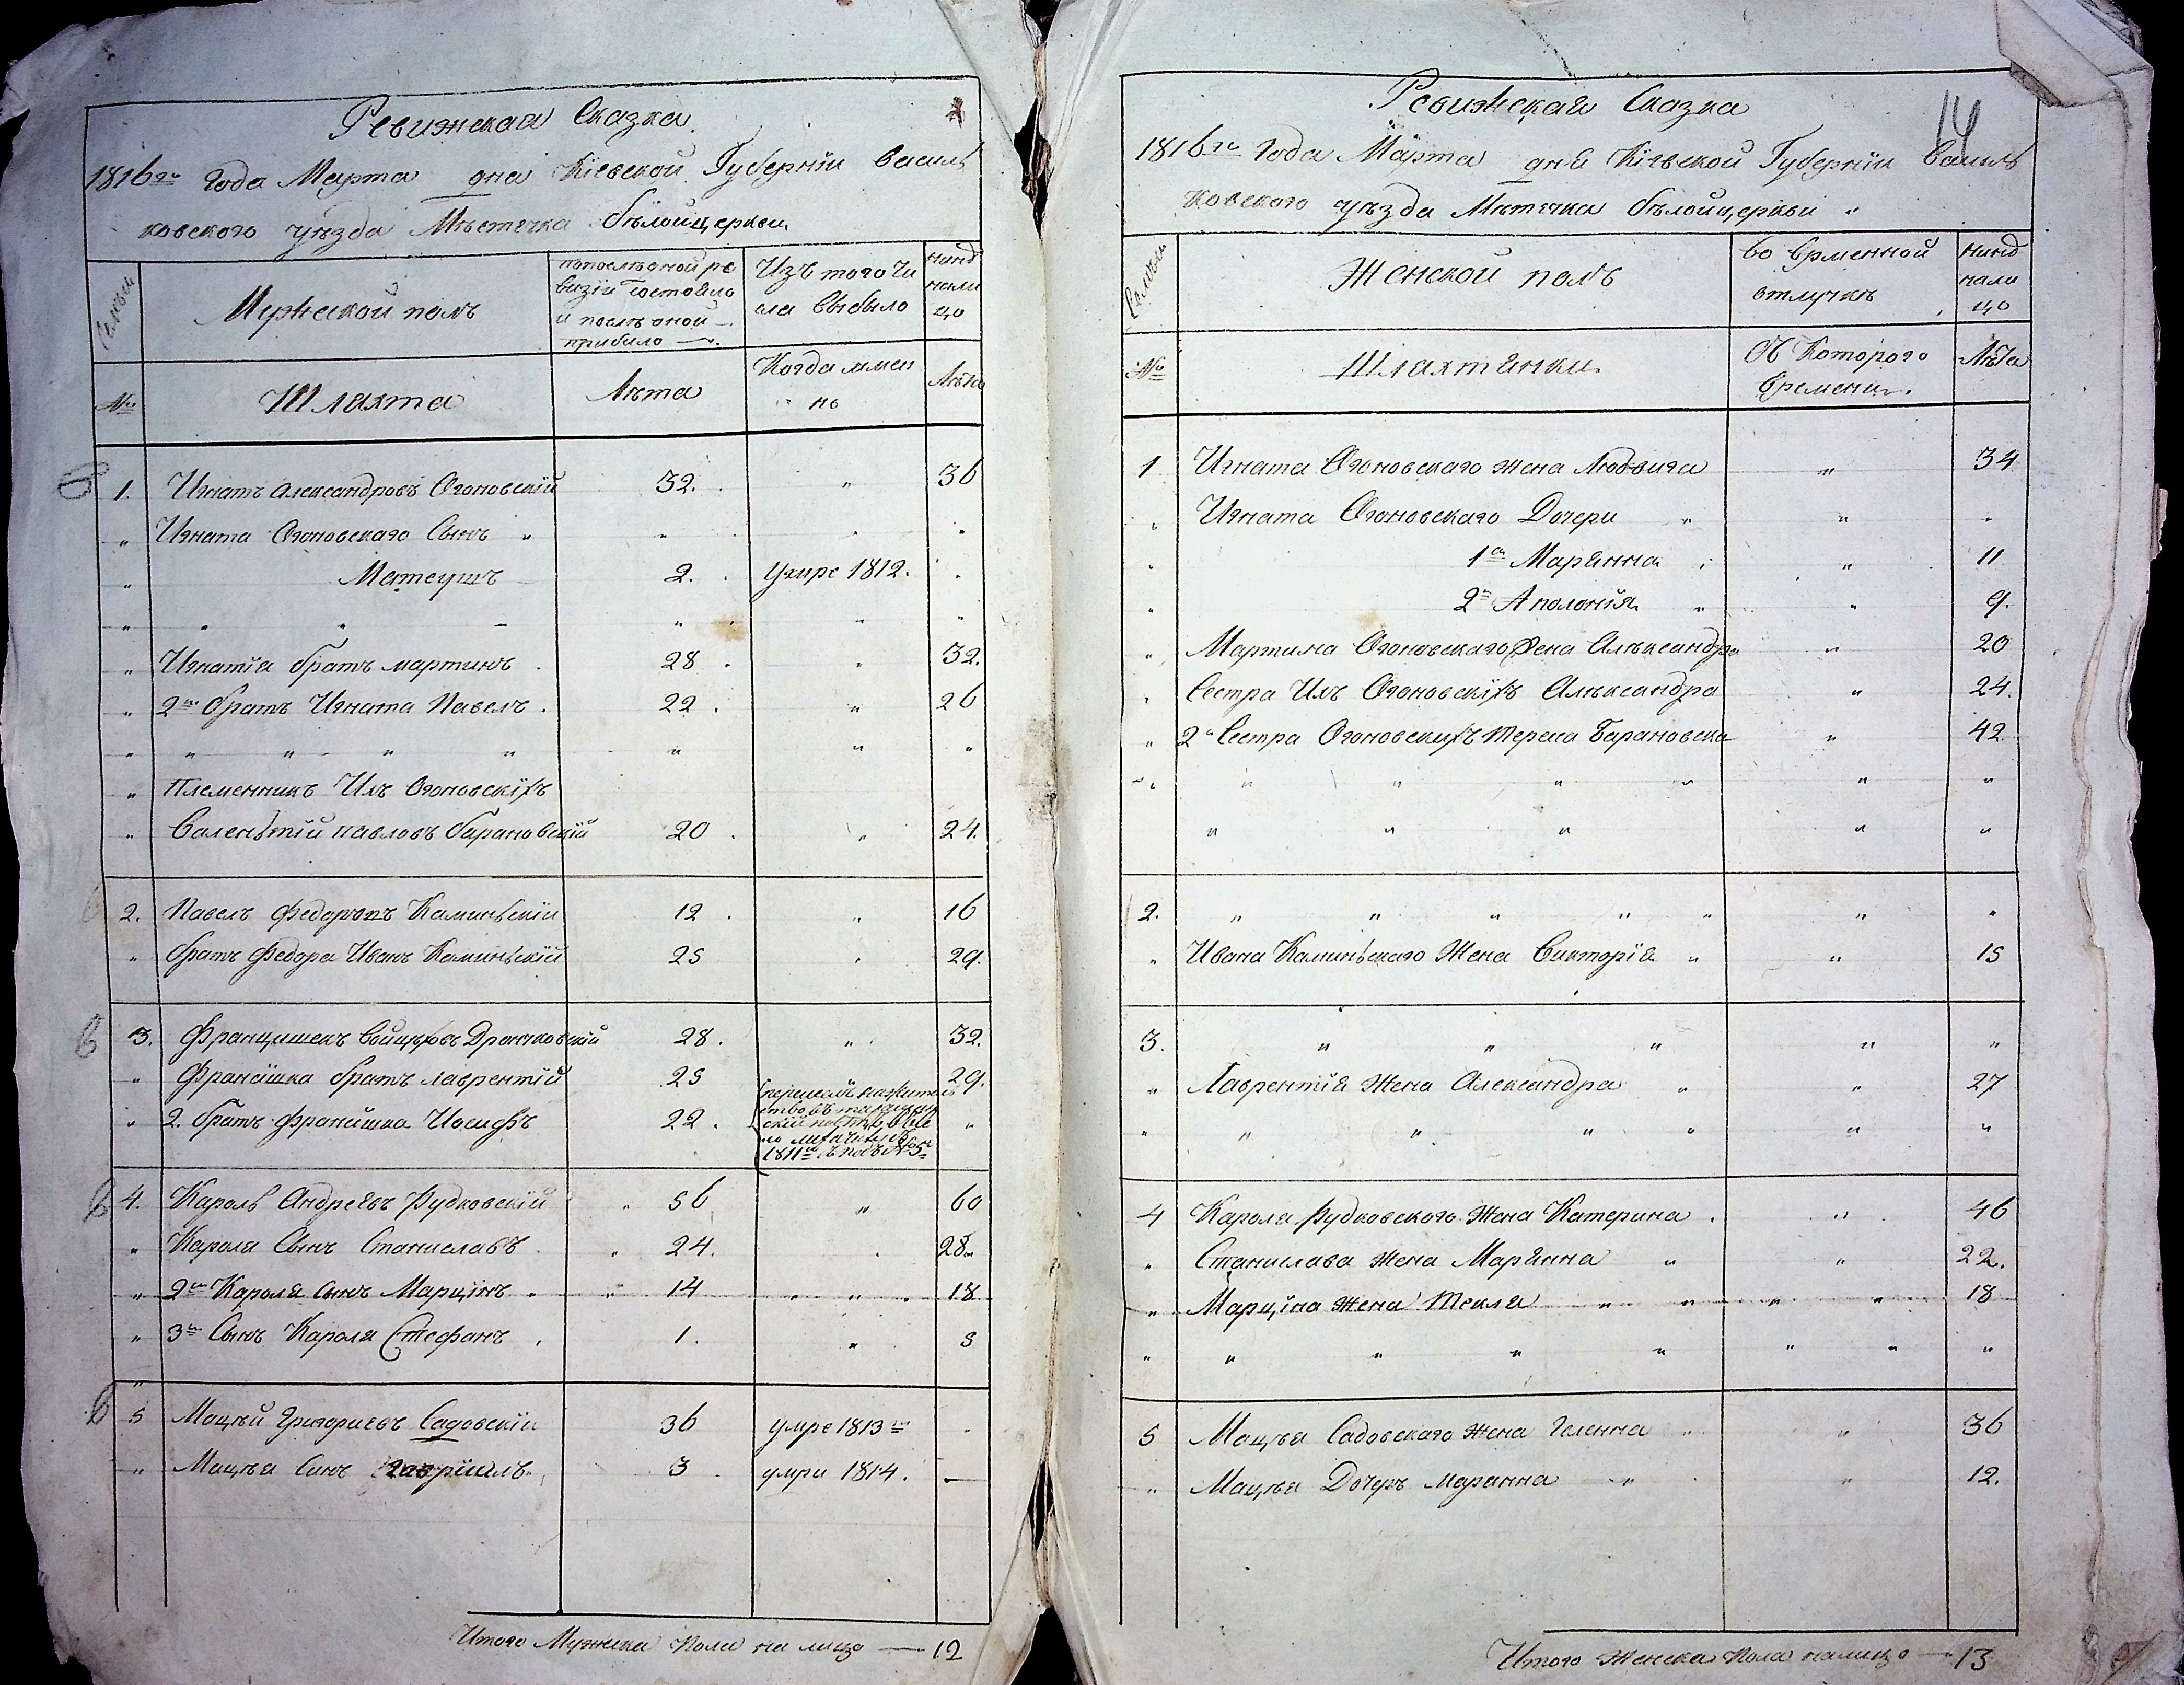 Ревижская Сказка
1816го Года Марта дня Кіевской Губерніи Василь
ковского уѣзда Мѣстечка бѣлойцеркви
Семьи
Мужеской полъ
попослѣдной ре
визіи состояло
и послѣ оной
прибило
Изъ того чи
сла выбыло
нинѣ
нали
цо
№
Шляхта
Лѣта
Когда имен
но
Лѣта
1. Игнатъ Александровъ Огоновскій 32. " 36
" Игната Огоновскаго Сынъ "
" Матеушъ 2. умре 1812.
" Игнатія братъ мартинъ 28 32.
" 2й братъ Игната Павелъ 22 " 26
" Племенникъ Ихъ Огоновскіхъ
" Валентій павловъ барановскій 20 24.
2. Павелъ Федоровъ Каминьскій 12 " 16
" братъ Федора Иванъ Каминьскій 25 29.
3. Францишекъ Войцѣховъ Дрончковскій 28. " 32.
" Францішка братъ лаврентій 25 29.
" 2. братъ францишка Иосифъ 22.
1811го
4. Кароль Андреевъ Рудковскій 56 " 60
" Кароля Сынъ Станиславъ 24. 28
" 2й Кароля сынъ Марцінъ 14 " 18
" 3й Сынъ Кароля Стефанъ 1. " 5
5 Мацѣй Григориевъ Садовскіи 36 умре 1813го
" Мацѣя Синъ Гавріилъ 3 умри 1814. —
Итого Мужеска Пола на лицо — 12
14
Ревижская Сказка
1816го Года Марта дня Кіевской Губерніи Василь
ковского уѣзда Мѣстечка бѣлойцеркви "
Семьи
Женской полъ
во времменной
отлучкѣ
нинѣ
нали
цо
№
Шляхтянки
Съ Которого
времени
Лѣта
1 Игната Огоновскаго жена Людвига " 34
" Игната Огоновскаго Дочери " "
1я Марянна " 11
2я Аполонія " 9.
" Мартина Огоновскаго Жена Алѣксандра " 20
" Сестра Ихъ Огоновскіхъ Алѣксандра " 24.
" 2я Сестра Огоновскихъ Тереса Барановска " 42
2. " " " " "
" Ивана Каминьскаго Жена Викторія " " 15
3. " " " " "
" Лаврентія Жена Александра " " 27
4 Кароля Рудковского Жена Катерина " 46
" Станислава жена Марянна " " 22.
" Марціна жена Текля " " " " 18
5 Мацѣя Садовскаго жена Геленна " 36
" Мацѣя Дочеръ Марянна " " 12.
Итого женска Пола налицо — 13